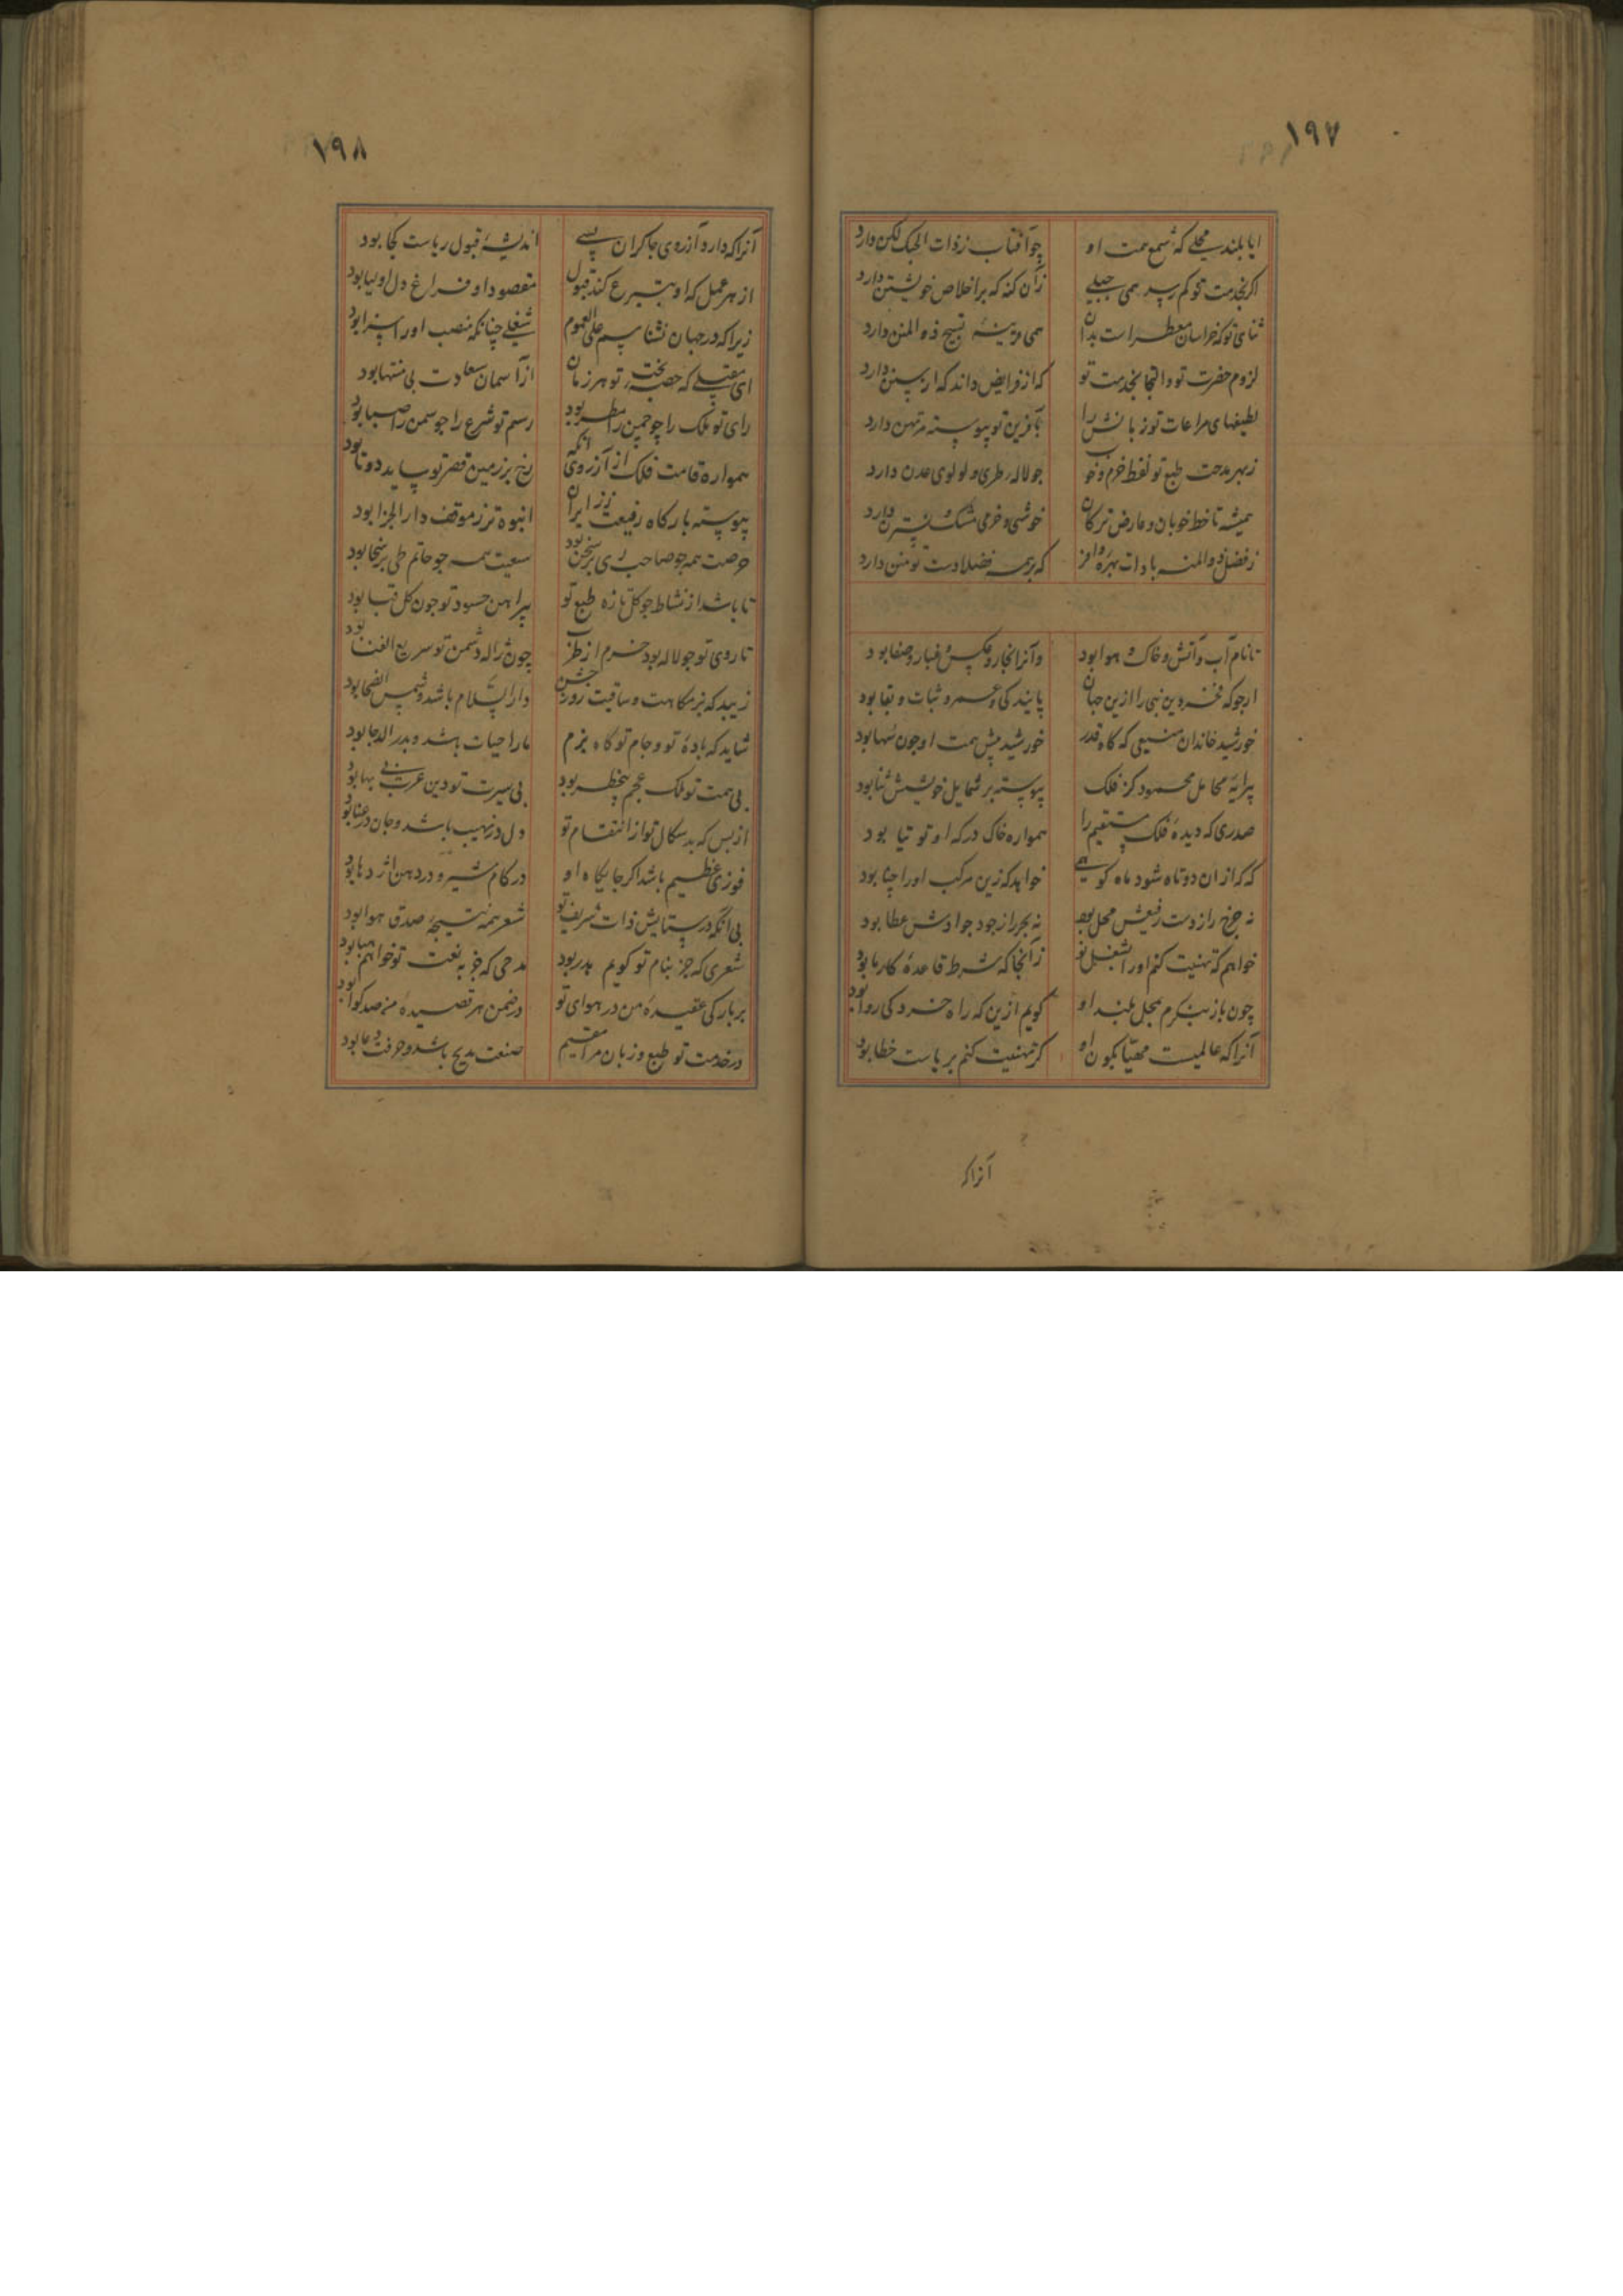 ۱۹۷
ایا بلند محلی که شمع همت او چو آفتاب ز ذات الحبک لکن دارد
اگر بخدمت تو کم رسد همی جبلی زان کند که بر اخلاص خویشتن دارد
ثنای تو که خراسان معطرست بدان همی قرینهٔ تسبیح ذو المنن دارد
لزوم حضرت تو و التجا بخدمت تو که از فرایض داند که از سنن دارد
لطیفهای مراعات تو زبانش را بآفرین تو پیوسته مرتهن دارد
ز بهر مدحت طبع تو لفظ خرم و خوب جو لاله طری و لولوی عدن دارد
همیشه تا خط خوبان و عارض ترکان خوشی و خرمی مشک و نسترن دارد
ز فضل ذو المنن باد ذات بهره‌ور که بر همه فضلا دست تو منن دارد
تا نام آب و آتش و خاک و هوا بود وانرا بخار و عکس و غبار و صفا بود
ارجو که فخر دین نبی را ازین جهان پایندکی و عمر و ثبات و بقا بود
خورشید خاندان منیعی که گاه قدر خورشید پیش همت او چون سها بود
پیرایهٔ محامل محمود کز فلک پیوسته بر شمایل خوبش ثنا بود
صدری که دیدهٔ فلک مستقیم را همواره خاک درکه او توتیا بود
که کز ان دوتاه شود ماه کو همی خواهد که زین مرکب او را جنا بود
نه چرخ را ز دست رفیعش محل بود نه بحر را ز جود جوادش عطا بود
خواهم که تهنیت کنم او را بشغل نو زانجا که شرط قاعدهٔ کارها بود
چون باز بنکرم بمحل بلند او کویم ازین که راه خرد کی روا بود
آنرا که عالمیست مهیا بکون او کر تهنیت کنم بریاست خطا بود
آنرا که
۱۹۸
آنرا که دارد آرزوی جاکران بسی اندیشهٔ قبول ریاست کجا بود
از هر عمل که او بتبرع کند قبول مقصود او فراغ دل اولیا بود
زیرا که در جهان نشناسم علی العموم شغلی چنانکه منصب او را سزا بود
ای مقبلی که حصهٔ بخت تو هر زمان از آسمان سعادت بی منتها بود
رای تو ملک را چو چمن را مطر بود رسم تو شرع را جو سمن را صبا بود
همواره قامت فلک از آرزوی آنکه رخ بر زمین قصر تو ساید دوتا بود
پیوسته بارکاه رفیعت ز زایران انبوه‌تر ز موقف دار الجزا بود
حرصت همه جو صاحب ری بر سخن بود سعیت همه جو حاتم طی بر سخا بود
تا باشد از نشاط جو کل تازه طبع تو پیراهن حسود تو جون کل قبا بود
تا روی تو جو لاله بود خرم از طرب چون ژاله دشمن تو سریع الفنا بود
زیبد که بزمکاهت و ساقیت روز جشن دار السلام باشد و شمس الضحا بود
شاید که بادهٔ تو و جام تو گاه بزم ما را حیات باشد و بدر الدجا بود
بی همت تو ملک عجم بیخطر بود بی سیرت تو دین عرب بی بها بود
از بس که بدسکال تو از انتقام تو دل در نهیب باشد و جان در عنا بود
فوزی عظیم باشد اکر جایکاه او در کام شیر و در دهن اژدها بود
بی آنکه در ستایش ذات شریف تو شعر همه نتیجهٔ صدق هوا بود
شعری که جز بنام تو کویم هدر بود مدحی که جز به نعت تو خوانم هبا بود
بر بارکی عقیدهٔ من در هوای تو در ضمن هر قصیدهٔ من صد کوا بود
در خدمت تو طبع و زبان مرا مقیم صنعت مدیح باشد و حرفت دعا بود